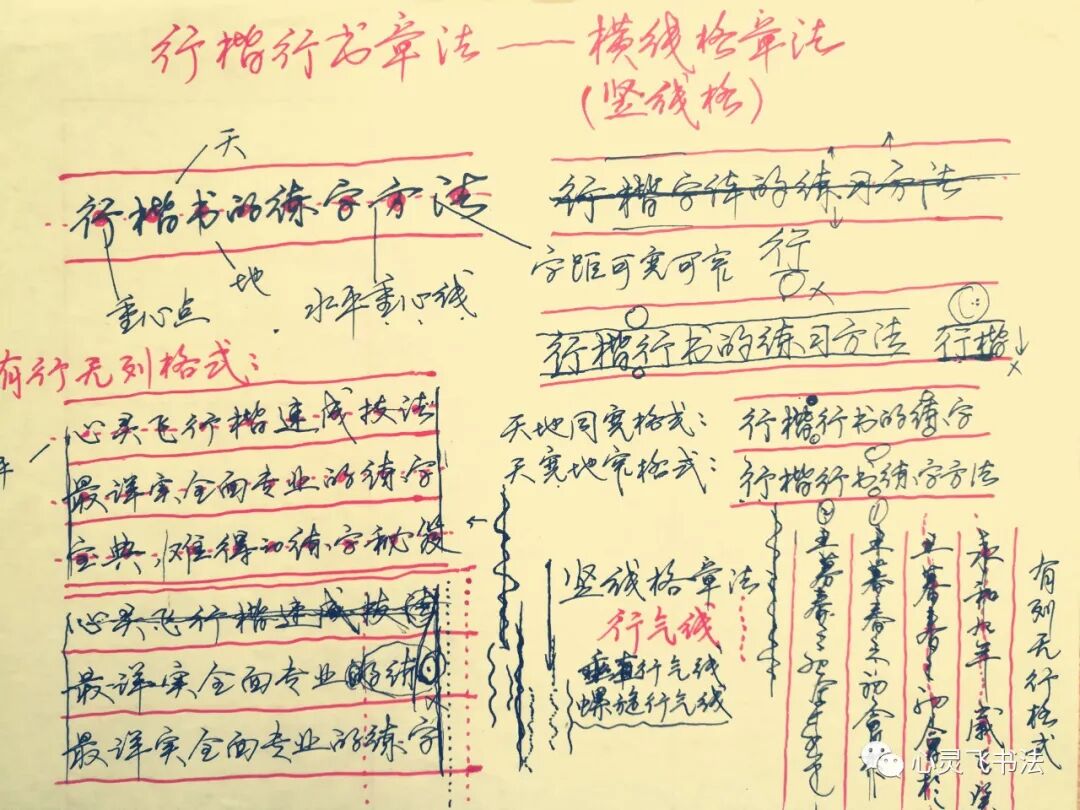 行楷行书章法——横线格章法
(竖线格)
天
行楷书的练字方法
地
重心点
水平重心线
行楷字体的练习方法
字距可宽可窄
行
行楷行书的练习方法
行楷
有行无列格式:
心灵飞行楷速成技法
最详实全面专业的练字
宝典,难得的练字秘笈
心灵飞行楷速成技法
最详实全面专业的练
最详实全面专业的练字
天地同宽格式:
行楷行书的练字
天宽地窄格式:
行楷行书练字方法
竖线格章法
行气线
垂直行气线
螺旋行气线
有列无行格式
永和九年 岁
暮春之初会
暮春之初会
暮春之初会
心灵飞书法